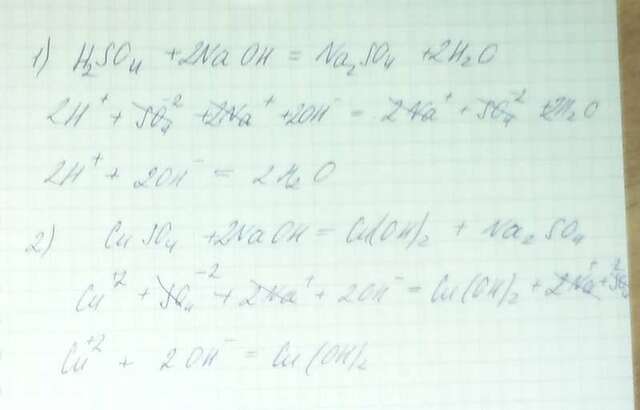 1) H₂SO₄ + 2NaOH = Na₂SO₄ + 2H₂O
2H⁺ + SO₄⁻² + 2Na⁺ + 2OH⁻ = 2Na⁺ + SO₄⁻² + 2H₂O
2H⁺ + 2OH⁻ = 2H₂O
2) CuSO₄ + 2NaOH = Cu(OH)₂ + Na₂SO₄
Cu⁺² + SO₄⁻² + 2Na⁺ + 2OH⁻ = Cu(OH)₂ + 2Na⁺ + SO₄⁻²
Cu⁺² + 2OH⁻ = Cu(OH)₂